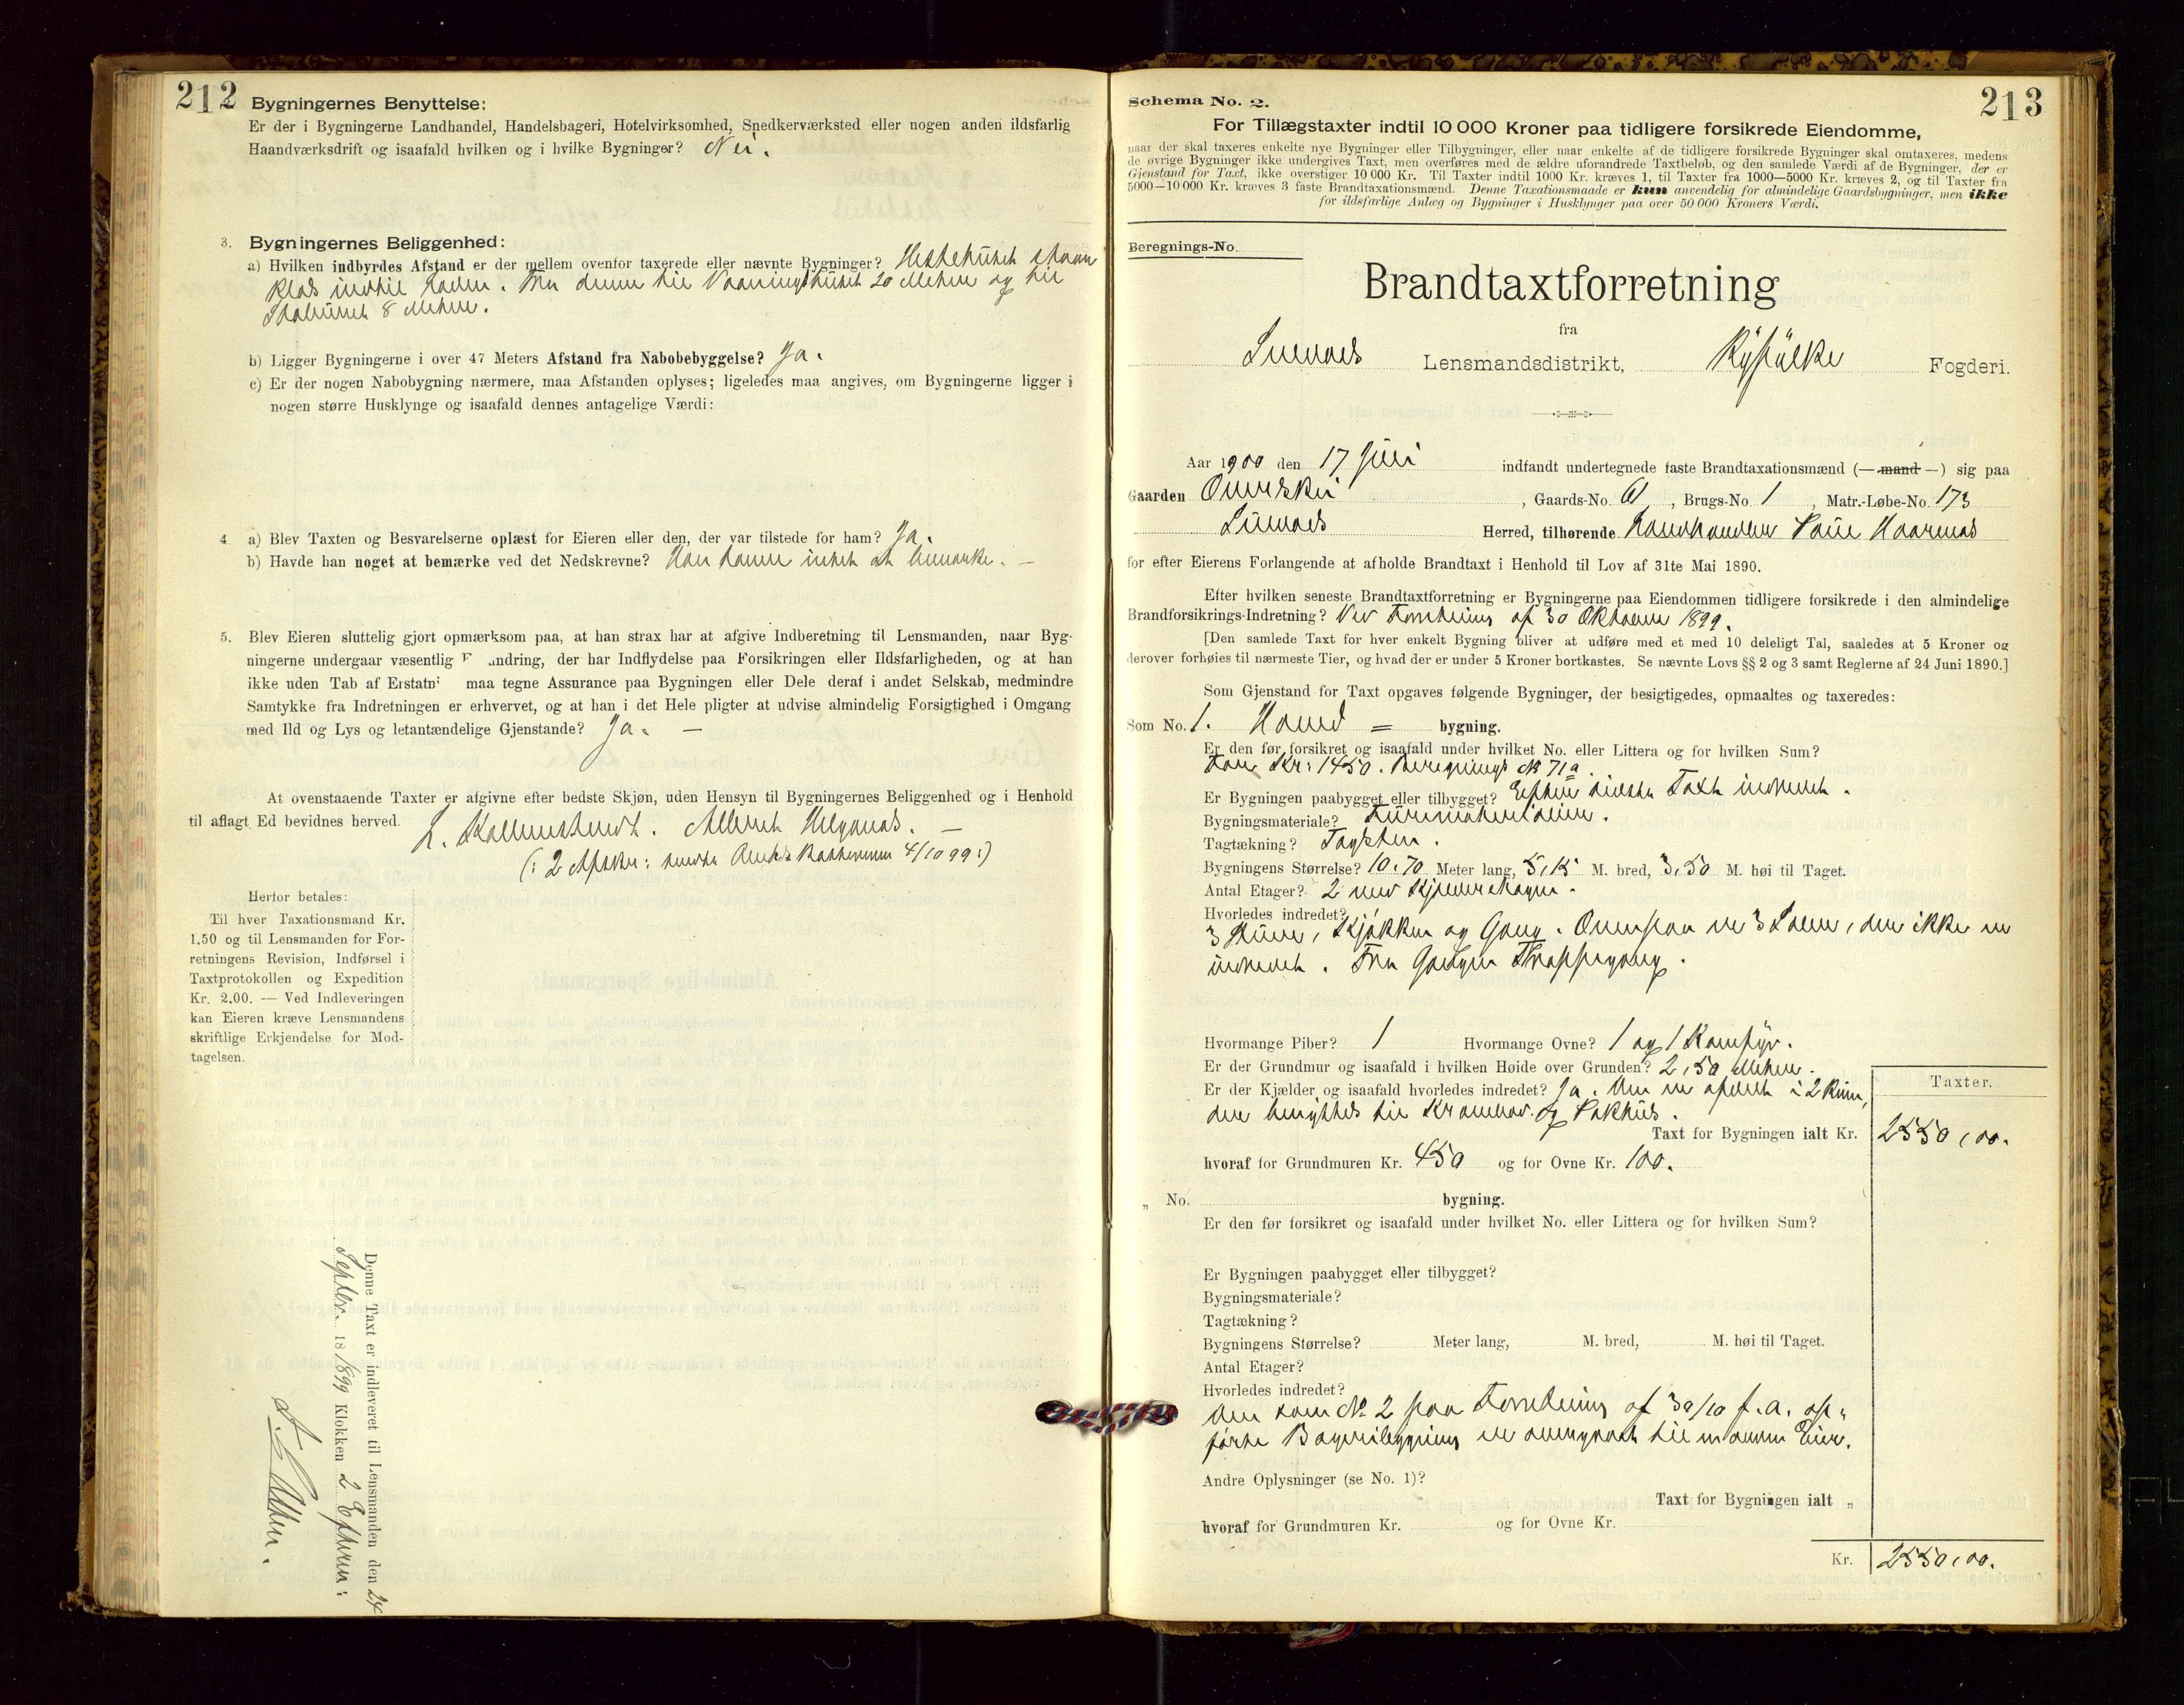 212
Bygningernes Benyttelse:
Er der i Bygningerne Landhandel, Handelsbageri, Hotelvirksomhed, Snedkerværksted eller nogen anden ildsfarlig
Haandværksdrift og isaafald hvilken og i hvilke Bygninger? Nei.
3. Bygningernes Beliggenhed:
a) Hvilken indbyrdes Afstand er der mellem ovenfor taxerede eller nævnte Bygninger?
klods indtil Laden. Fra denne til Vaaningshuset 20 Meter og til
8 Meter.
b) Ligger Bygningerne i over 47 Meters Afstand fra Nabobebyggelse? Ja.
c) Er der nogen Nabobygning nærmere, maa Afstanden oplyses; ligeledes maa angives, om Bygningerne ligger i
nogen større Husklynge og isaafald dennes antagelige Værdi:
4. a) Blev Taxten og Besvarelserne oplæst for Eieren eller den, der var tilstede for ham? Ja.
b) Havde han noget at bemærke ved det Nedskrevne? Han havde intet at bemærke. —
5. Blev Eieren sluttelig gjort opmærksom paa, at han strax har at afgive Indberetning til Lensmanden, naar Byg-
ningerne undergaar væsentlig F andring, der har Indflydelse paa Forsikringen eller Ildsfarligheden, og at han
ikke uden Tab af Erstatni maa tegne Assurance paa Bygningen eller Dele deraf i andet Selskab, medmindre
Samtykke fra Indretningen er erhvervet, og at han i det Hele pligter at udvise almindelig Forsigtighed i Omgang
med Ild og Lys og letantændelige Gjenstande? Ja. —
At ovenstaaende Taxter er afgivne efter bedste Skjøn, uden Hensyn til Bygningernes Beliggenhed og i Henhold
til aflagt Ed bevidnes herved.
4/10 99:)
Herfor betales:
Til hver Taxationsmand Kr.
1.50 og til Lensmanden for For-
retningens Revision, Indførsel i
Taxtprotokollen og Expedition
Kr. 2.00. — Ved Indleveringen
kan Eieren kræve Lensmandens
skriftlige Erkjendelse for Mod-
tagelsen.
Denne Taxt er indleveret til Lensmanden den 24
Septbr. 18 1899 Klokken 2 Efterm:
213
Schema No. 2.
For Tillægstaxter indtil 10 000 Kroner paa tidligere forsikrede Eiendomme,
naar der skal taxeres enkelte nye Bygninger eller Tilbygninger, eller naar enkelte af de tidligere forsikrede Bygninger skal omtaxeres, medens
de øvrige Bygninger ikke undergives Taxt, men overføres med de ældre uforandrede Taxtbeløb, og den samlede Værdi af de Bygninger, der er
Gjenstand for Taxt, ikke overstiger 10 000 Kr. Til Taxter indtil 1000 Kr. kræves 1, til Taxter fra 1000—5000 Kr. kræves 2, og til Taxter fra
5000—10 000 Kr. kræves 3 faste Brandtaxationsmænd. Denne Taxationsmaade er kun anvendelig for almindelige Gaardsbygninger, men ikke
for ildsfarlige Anlæg og Bygninger i Husklynger paa over 50 000 Kroners Værdi.
Beregnings-No.
Brandtaxtforretning
fra
Suldals Lensmandsdistrikt, Ryfylke Fogderi.
Aar 1900 den 17 Juli indfandt undertegnede faste Brandtaxationsmænd (— mand —) sig paa
Gaarden , Gaards-No. 61, Brugs-No. 1, Matr.-Løbe-No. 173
Suldals Herred, tilhørende Landhandler
for efter Eierens Forlangende at afholde Brandtaxt i Henhold til Lov af 31te Mai 1890.
Efter hvilken seneste Brandtaxtforretning er Bygningerne paa Eiendommen tidligere forsikrede i den almindelige
Brandforsikrings-Indretning? Ved Forretning af 30 Oktober 1899.
[Den samlede Taxt for hver enkelt Bygning bliver at udføre med et med 10 deleligt Tal, saaledes at 5 Kroner og
derover forhøies til nærmeste Tier, og hvad der er under 5 Kroner bortkastes. Se nævnte Lovs §§ 2 og 3 samt Reglerne af 24 Juni 1890.]
Som Gjenstand for Taxt opgaves følgende Bygninger, der besigtigedes, opmaaltes og taxeredes:
Som No. 1. Hoved = bygning.
Er den før forsikret og isaafald under hvilket No. eller Littera og for hvilken Sum?
for Kr: 1450. Beregnings № 71a.
Er Bygningen paabygget eller tilbygget? Efter sidste Taxt indredet.
Bygningsmateriale? Furematerialier.
Tagtækning? Tagsten.
Bygningens Størrelse? 10,70 Meter lang, 5,15 M. bred, 3,50 M. høi til Taget.
Antal Etager? 2 med Kjælderetagen.
Hvorledes indredet?
3 Stuer, Kjøkken og Gang. Ovenpaa er 3 Sale, der ikke er
indredet. Fra Gangen Trappegang.
Hvormange Piber? 1 Hvormange Ovne? 1 og 1 Komfyr.
Er der Grundmur og isaafald i hvilken Høide over Grunden? 2,50 Meter.
Er der Kjælder og isaafald hvorledes indredet? Ja. Den er afdelt i 2 Rum,
der benyttes til Krambod og Pakhus.
Taxter.
Taxt for Bygningen ialt Kr. 2550,00.
hvoraf for Grundmuren Kr. 450 og for Ovne Kr. 100.
„ No. bygning.
Er den før forsikret og isaafald under hvilket No. eller Littera og for hvilken Sum?
Er Bygningen paabygget eller tilbygget?
Bygningsmateriale?
Tagtækning?
Bygningens Størrelse? Meter lang, M. bred, M. høi til Taget.
Antal Etager?
Hvorledes indredet?
Den som № 2 paa Forretning af 30/10 f.a. op-
førte Bageribygning er overgaaet til en anden Eier.
Andre Oplysninger (se No. 1)?
Taxt for Bygningen ialt „
hvoraf for Grundmuren Kr. og for Ovne Kr.
Kr. 2550,00.